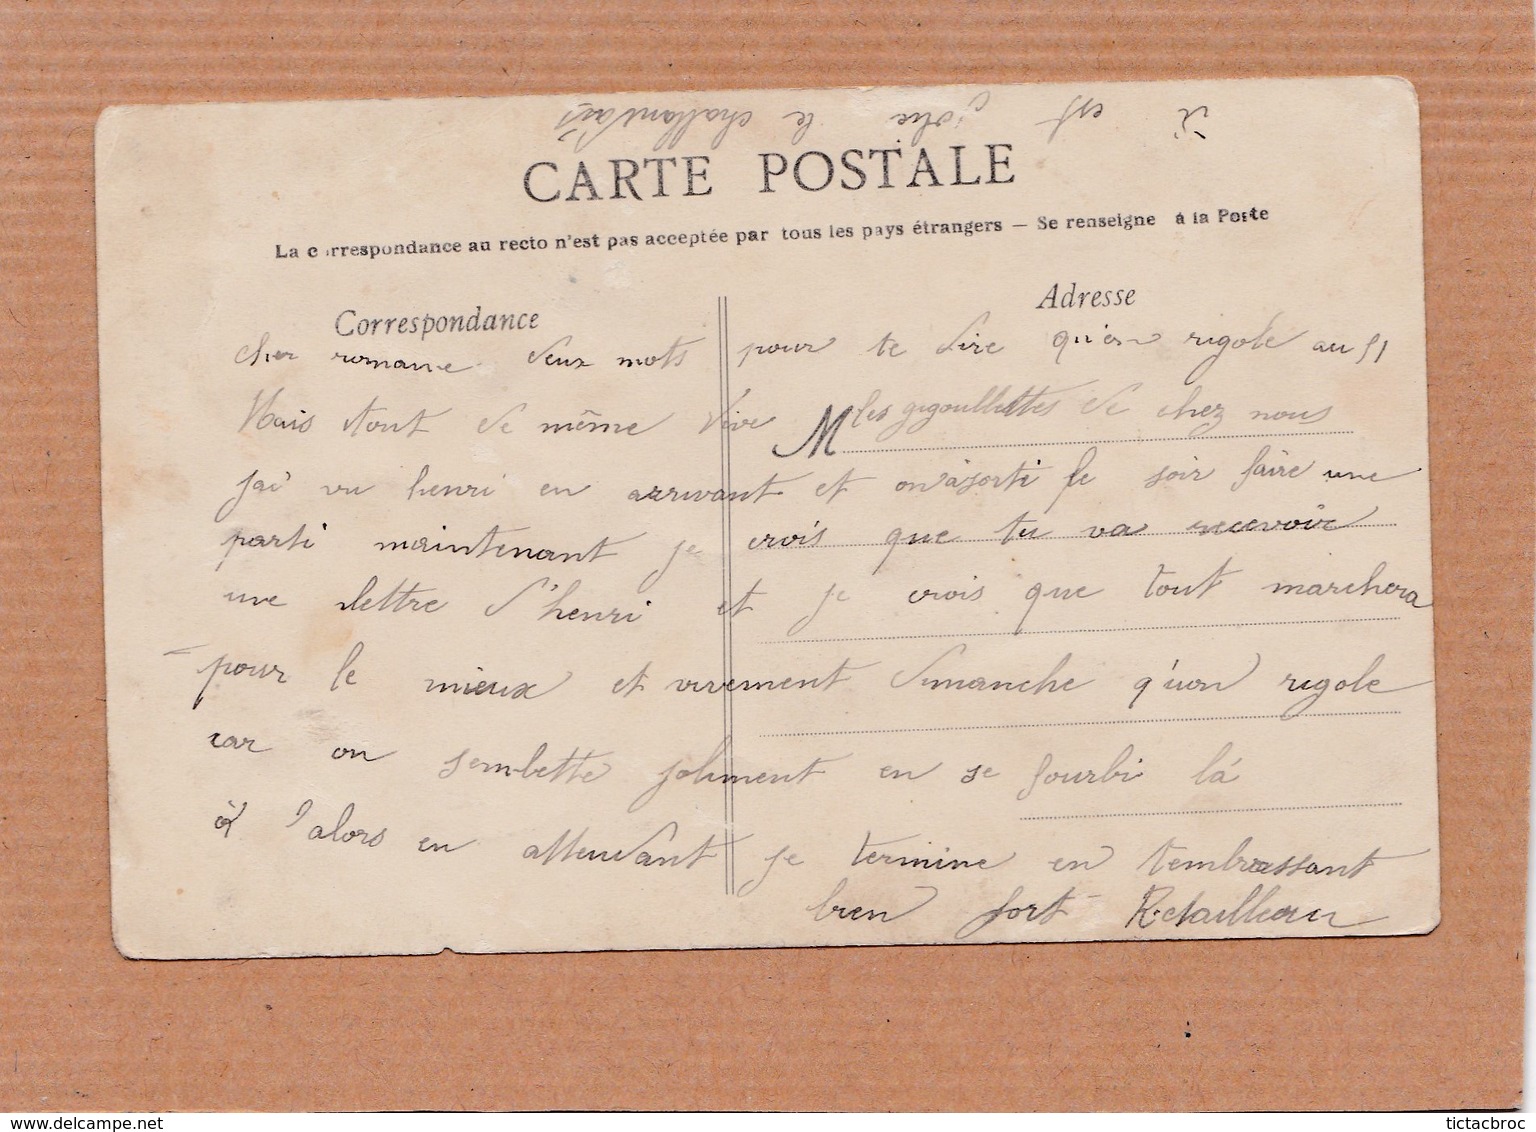 il est jolie le challandais
CARTE POSTALE
La correspondance au recto n'est pas acceptée par tous les pays étrangers — Se renseigne à la Poste
Correspondance
Adresse
cher romane deux mots pour te dire qu'en rigole au 51
Mais tout de même vive M les gigoullettes de chez nous
j'ai vu henri en arrivant et on a sorti le soir faire une
parti maintenant je crois que tu va recevoir
une lettre d'henri et je crois que tout marchera
pour le mieux et vivement dimanche q'uon rigole
car on sembette joliment en se fourbi là
l'alors en attendant je termine en tembrassant
bien fort Retailleau
delcampe.net
tictacbroc